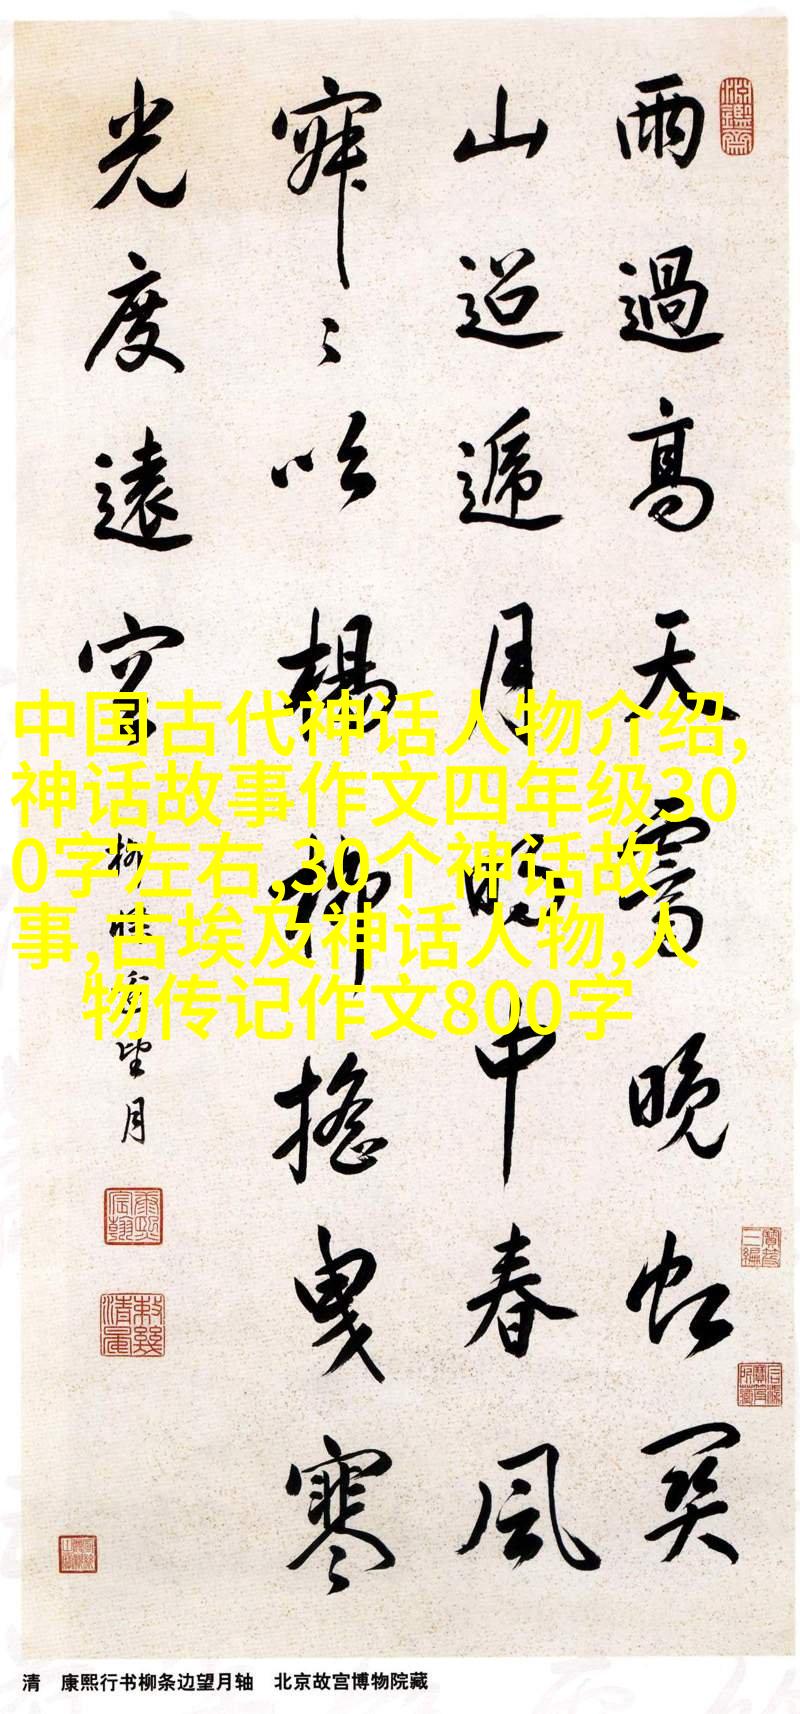 雨過高天霽晚虹関
山迢遞月明中春風
寂〻吹楊柳搖曳寒
光度遠空
柳條邊望月
淵鑒齋
康熙宸翰
敕幾清晏
寶笈三編
中国古代神话人物介绍,
神话故事作文四年级30
0字左右,30个神话故
事,古埃及神话人物,人
物传记作文800字
清 康熙行书柳条边望月轴 北京故宫博物院藏